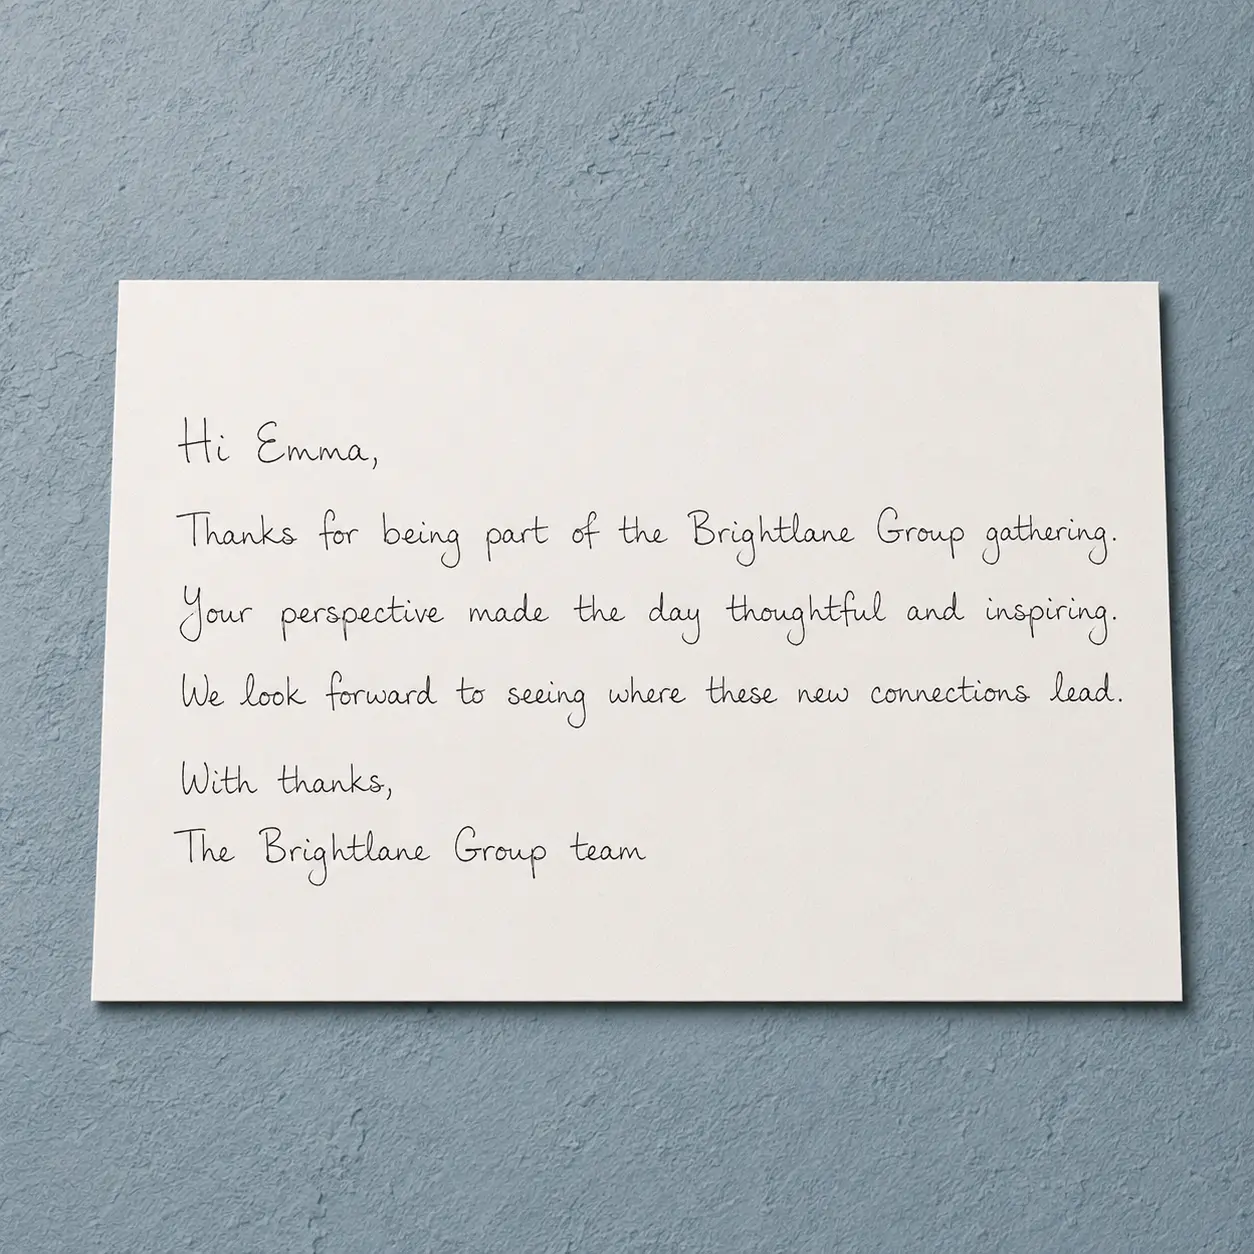 Hi Emma,
Thanks for being part of the Brightlane Group gathering.
Your perspective made the day thoughtful and inspiring.
We look forward to seeing where these new connections lead.
With thanks,
The Brightlane Group team